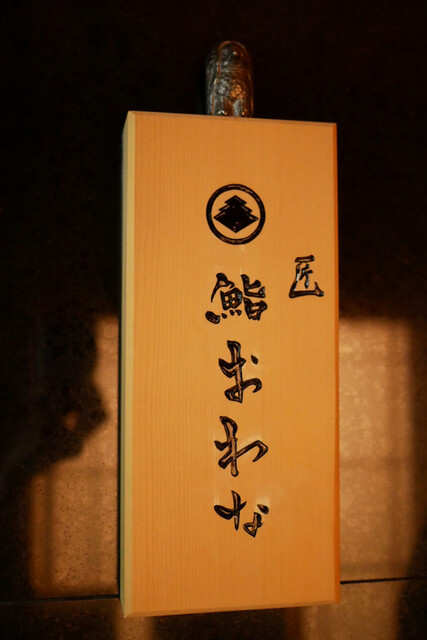 匠
鮨おわな